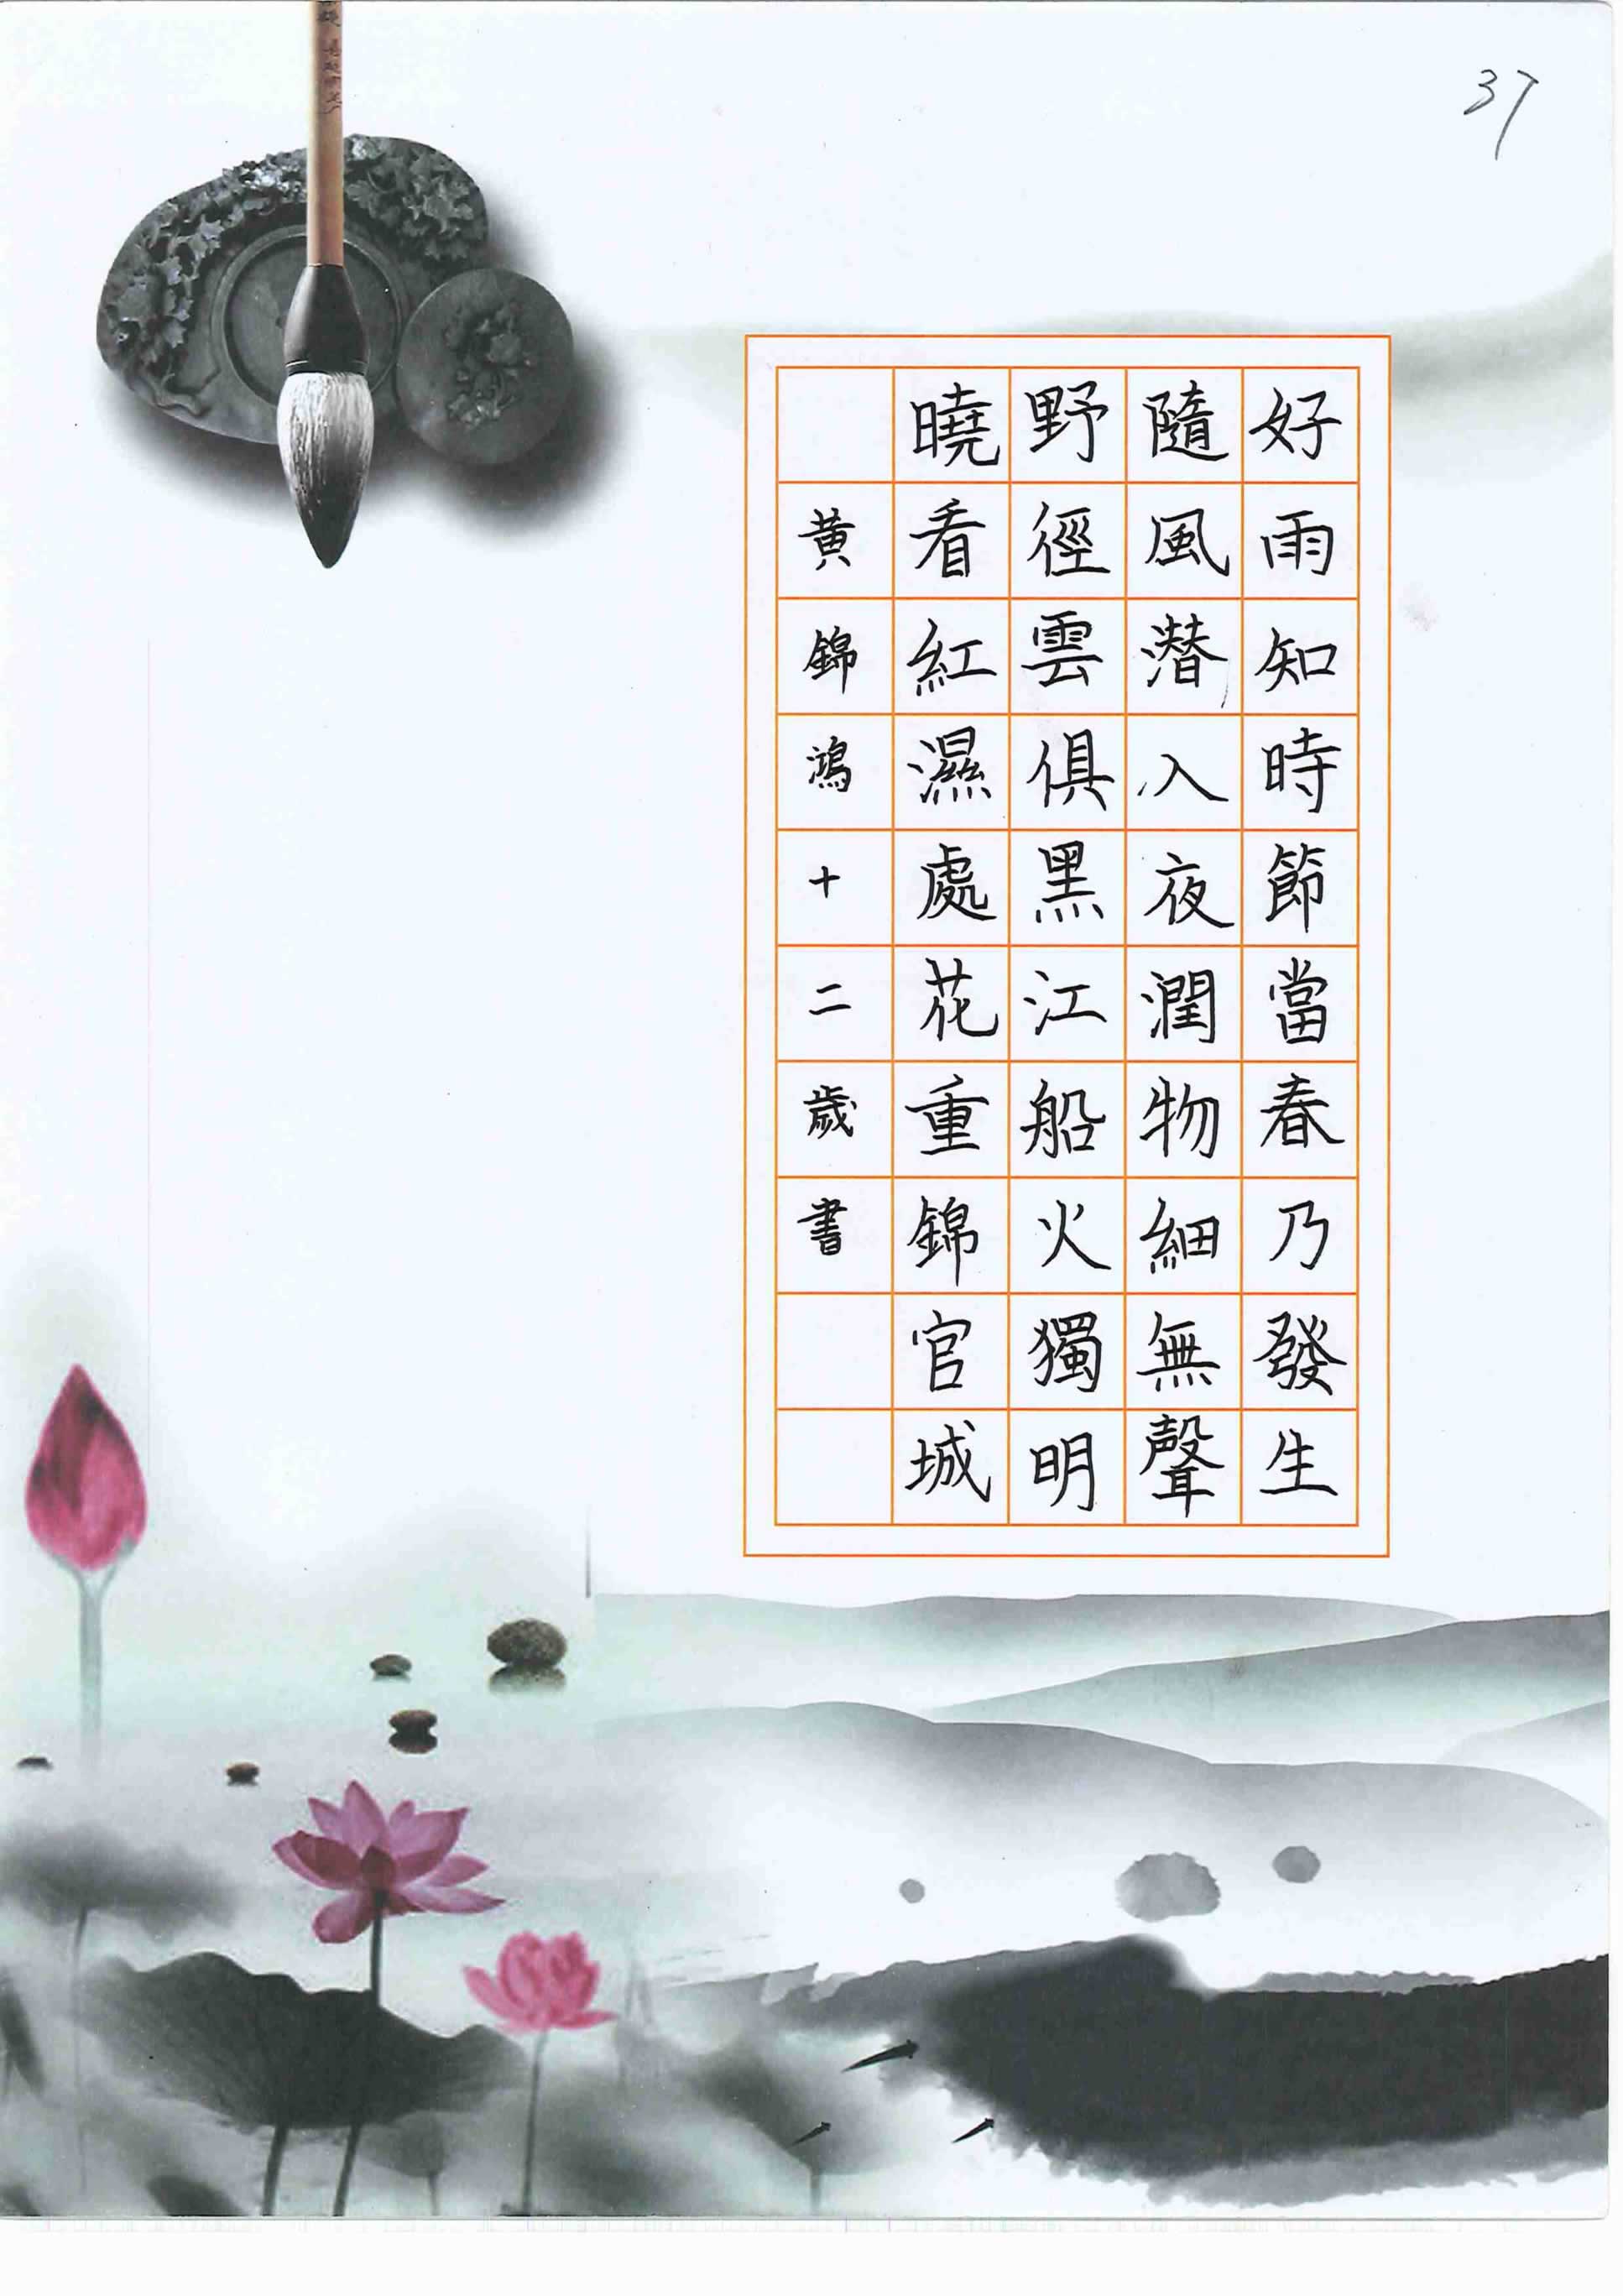 37
好雨知時節當春乃發生
隨風潛入夜潤物細無聲
野徑雲俱黑江船火獨明
曉看紅濕處花重錦官城
黃錦鴻十二歲書